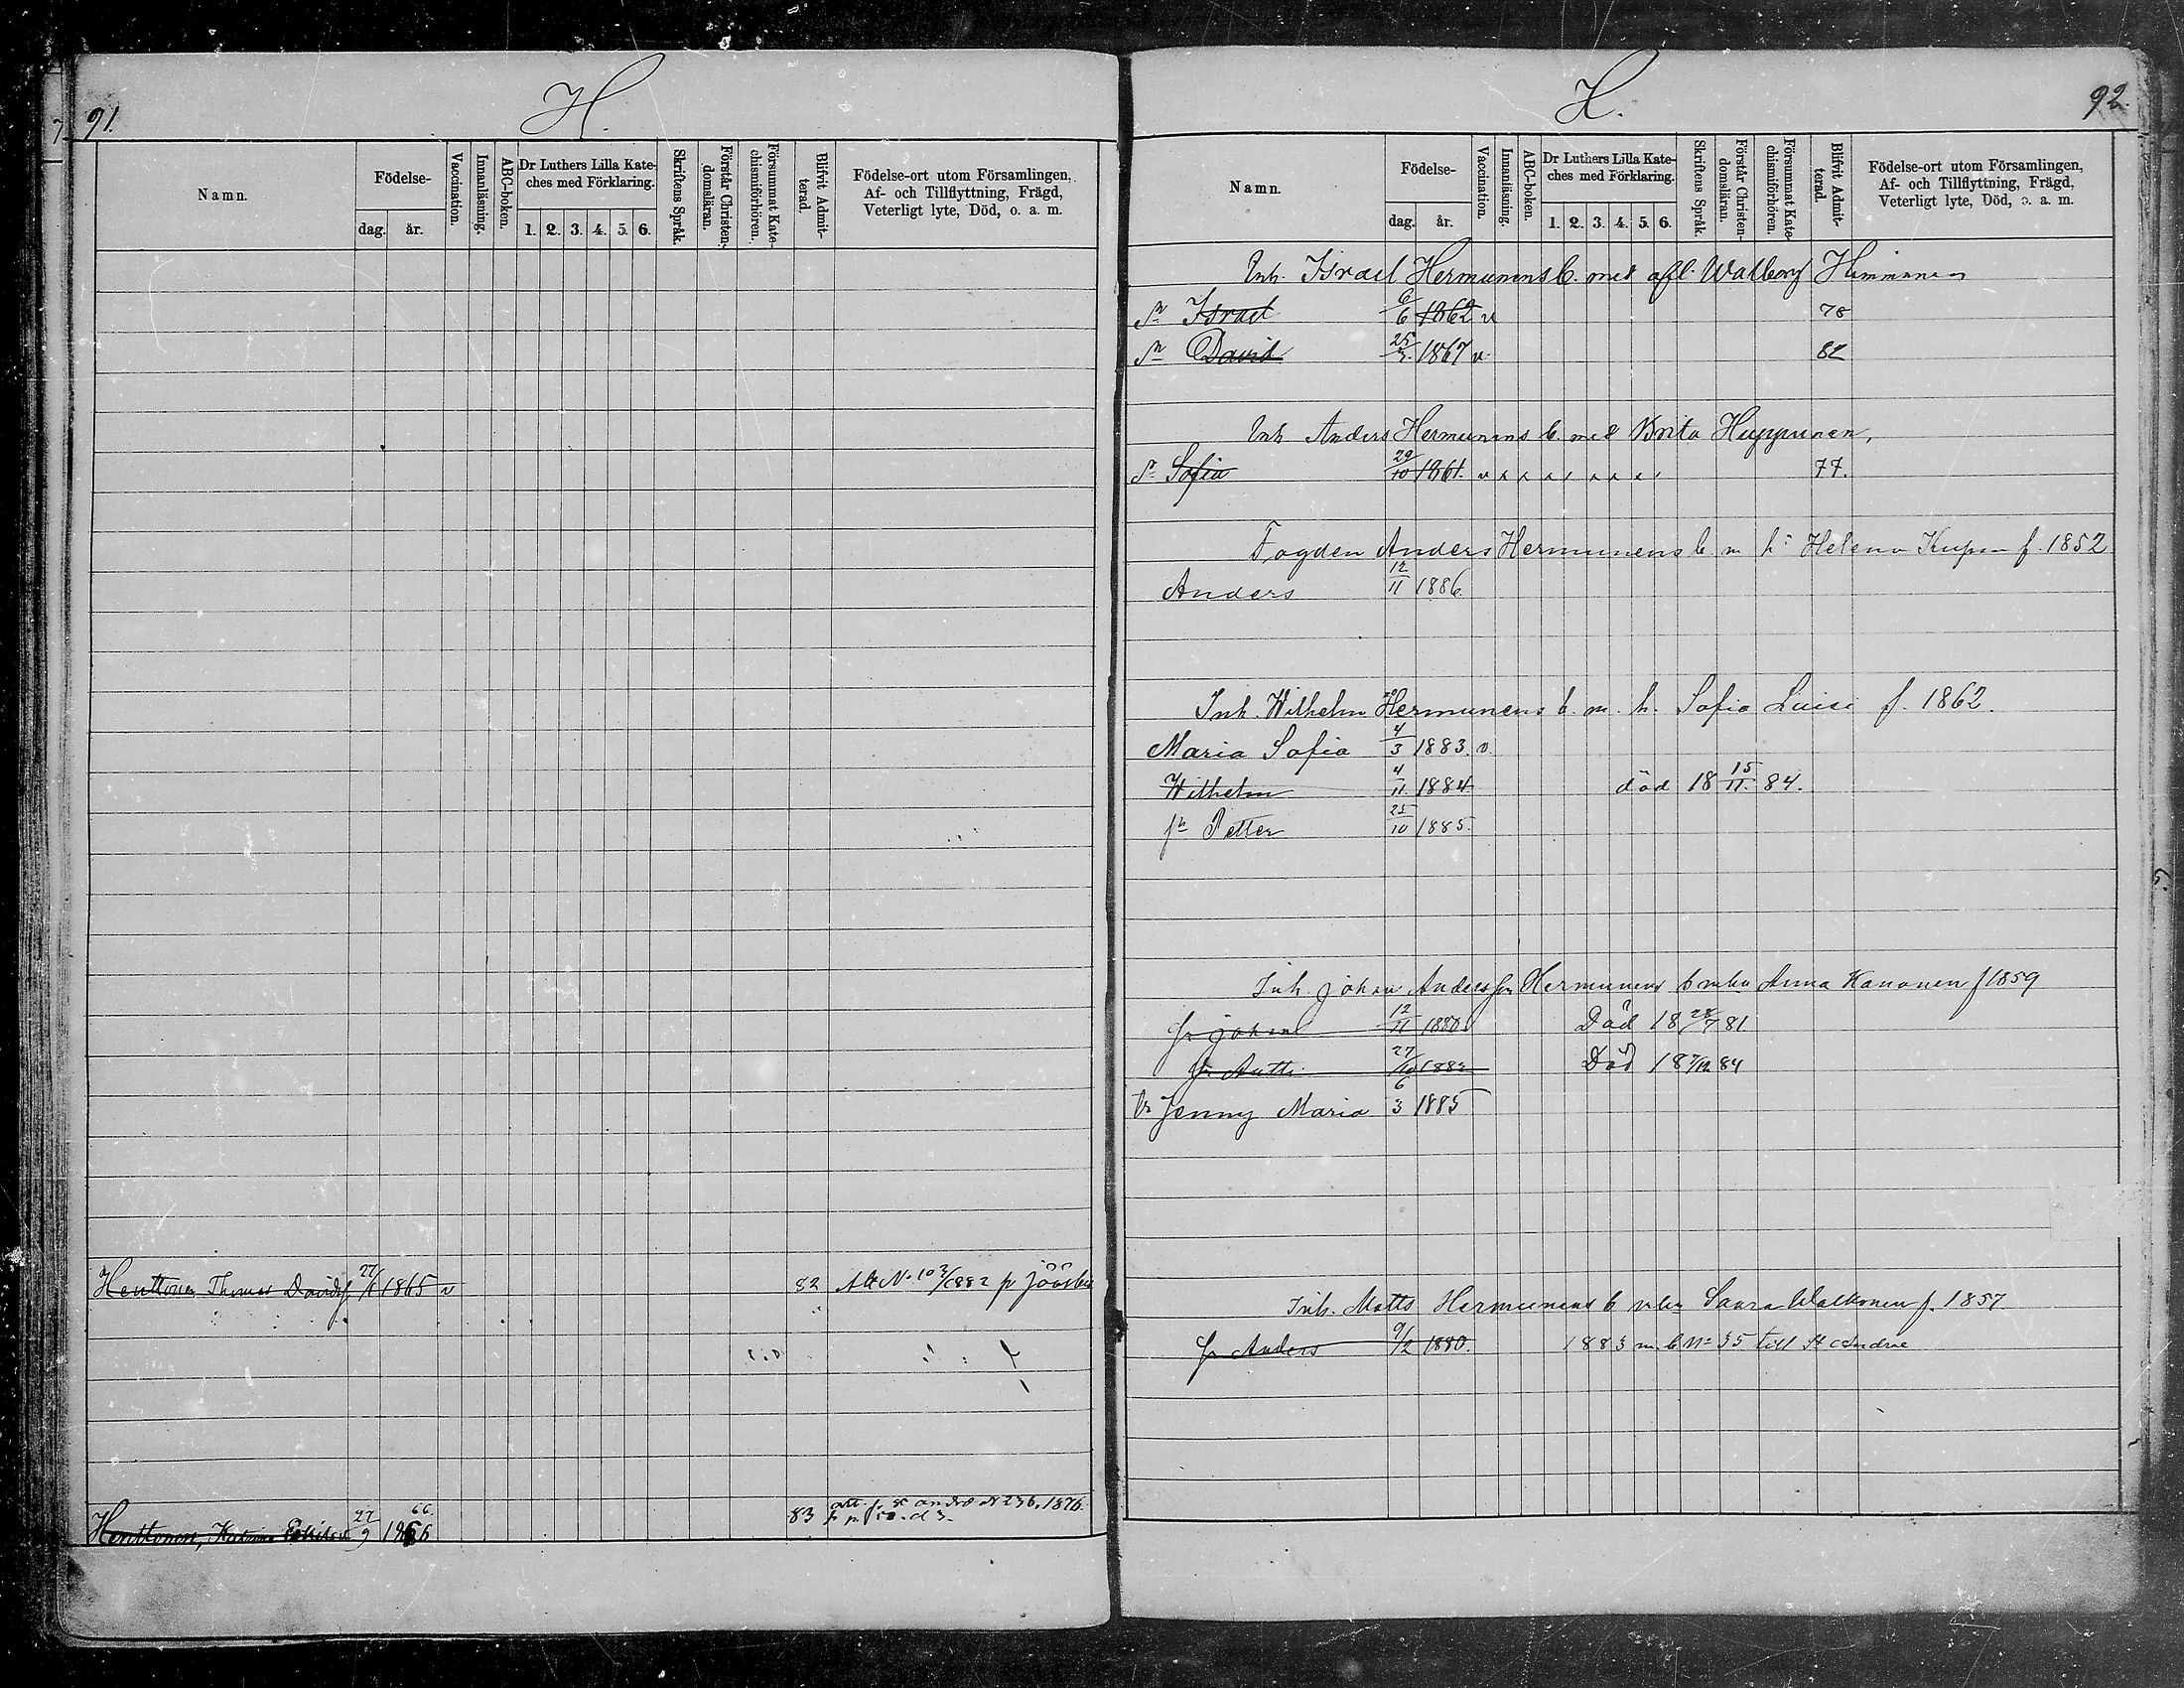 91.
H.
Namn.
Födelse-
dag.
år.
Vaccination.
Innanläsning.
ABC-boken.
Dr Luthers Lilla Kate-
ches med Förklaring.
1. 2. 3. 4. 5. 6.
Skriftens Språk.
Förstår Christen-
domsläran.
Försummat Kate-
chismiförhören.
Blifvit Admit-
terad.
Födelse-ort utom Församlingen,
Af- och Tillflyttning, Frägd,
Veterligt lyte, Död, o. a. m.
Henttonen Thomas Davidsf. 1865 v 82
Henttonen, 27/9 1866 66. 83
H.
92.
Namn.
Födelse-
dag.
år.
Vaccination.
Innanläsning.
ABC-boken.
Dr Luthers Lilla Kate-
ches med Förklaring.
1. 2. 3. 4. 5. 6.
Skriftens Språk.
Förstår Christen-
domsläran.
Försummat Kate-
chismiförhören.
Blifvit Admit-
terad.
Födelse-ort utom Församlingen,
Af- och Tillflyttning, Frägd,
Veterligt lyte, Död, o. a. m.
Inh. Israel Hermunens b. med afl. Walborg
Sn Israel 6/6 1862 v 78
Sn David 1867 v. 82
Inh Anders Hermunens b. med Brita Huppunen,
Sofia 29/10 1861. v 77.
Fogden Anders Hermunens b. m h: Helena f. 1852
Anders 12/11 1886.
Inh. Wilhelm Hermunens b. m. h. Sofia f. 1862.
Maria Sofia 4/3 1883. v
Wilhelm 4/11. 1884 död 18 15/11. 84.
Petter 25/10 1885.
Inh. Johan Hermunens b Anna Kanonen f 1859
Johan 12/11 1880 Död 18 28/7 81
Antti 27/10 1882 Död 18 84
Jenny Maria 6/3 1885
Inh. Matts Hermunens b f. 1857
Anders 9/2 1880. 1883 m. b No 35 till St Andrae